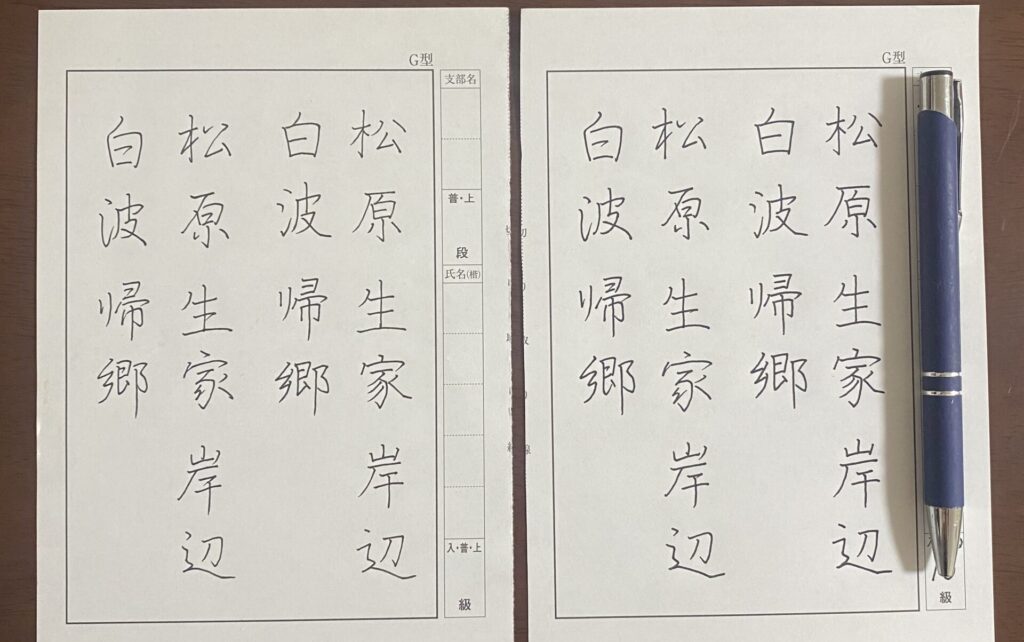 G型
松原生家岸辺
白波帰郷
松原生家岸辺
白波帰郷
支部名
普・上
段
氏名(楷)
入・普・上
級
G型
松原生家岸辺
白波帰郷
松原生家岸辺
白波帰郷
級